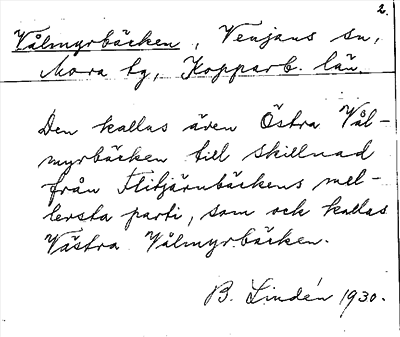 2.
Vålmyrbäcken, Venjans sn,
Mora tg, Kopparb. län.
Den kallas även Östra Vål-
myrbäcken till skillnad
från Flitjärnbäckens mel-
lersta parti, som och kallas
Västra Vålmyrbäcken.
B. Lindén 1930.